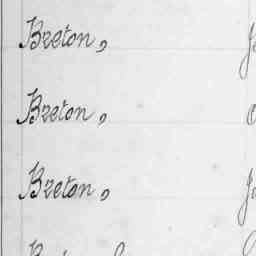 Breton,
Breton,
Breton,